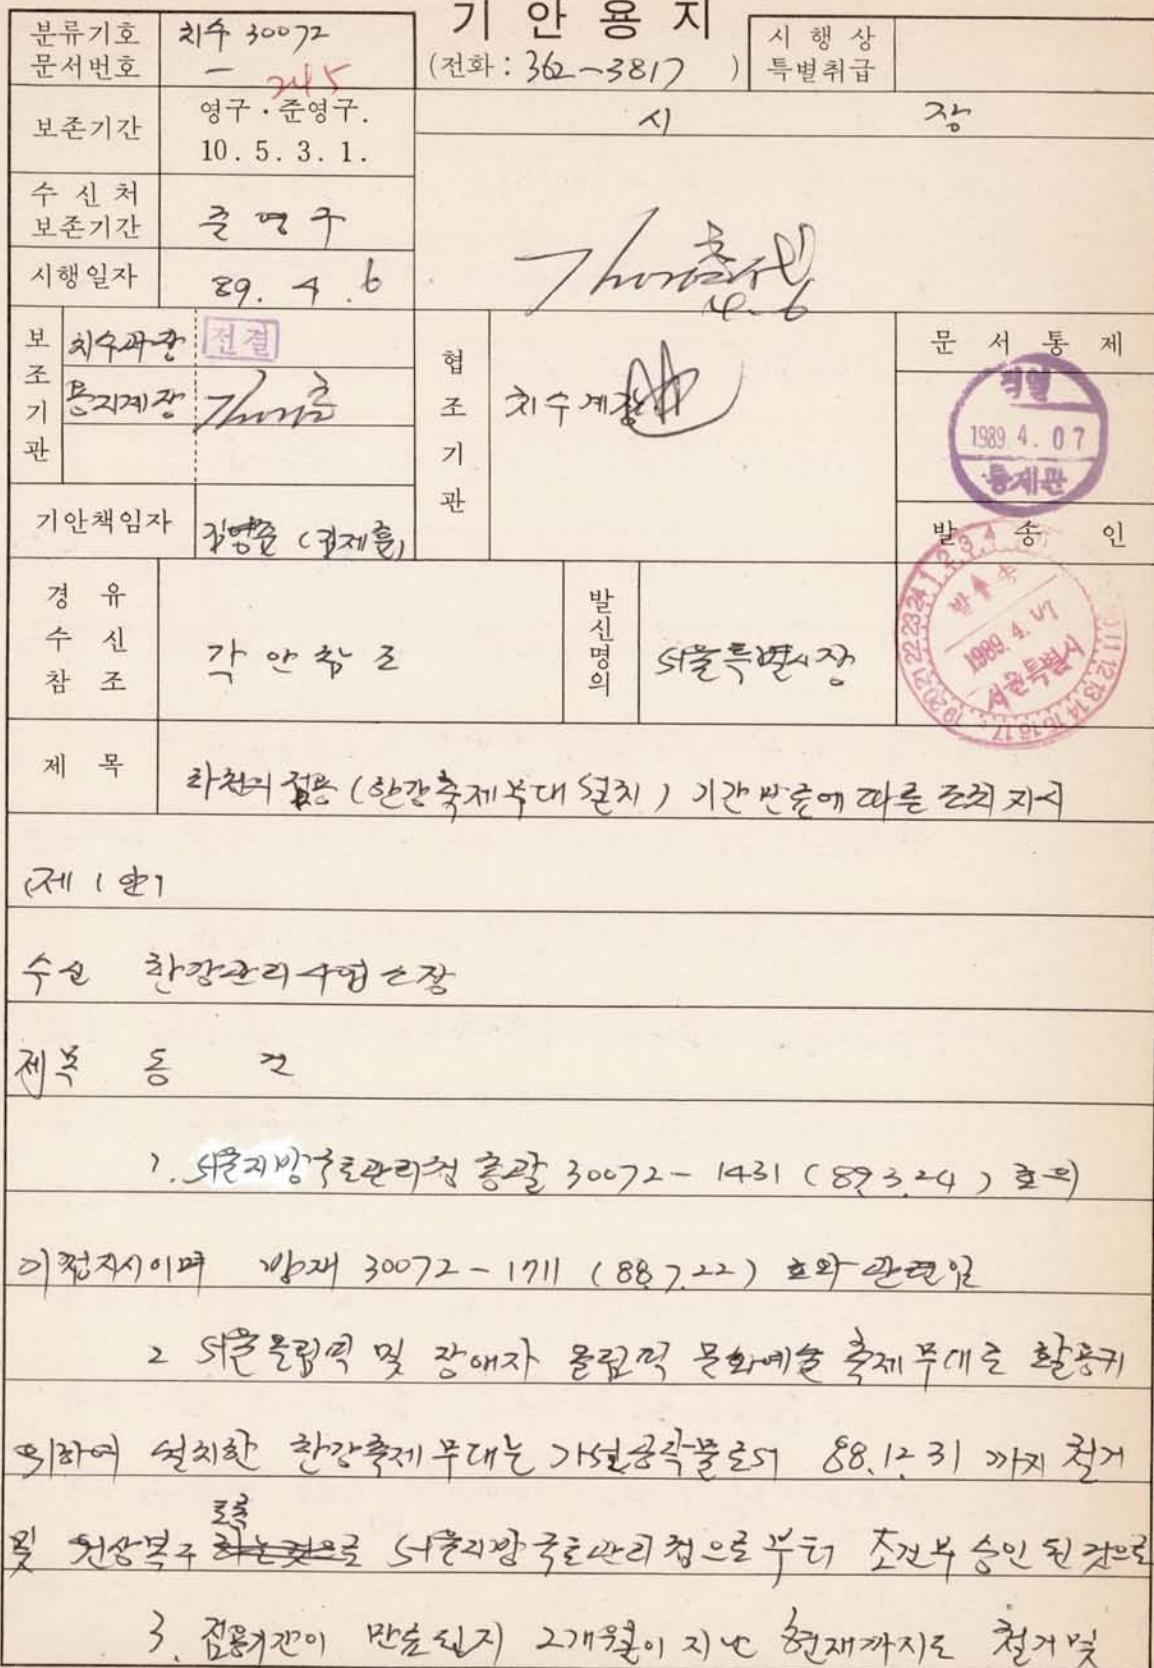 기 안 용 지
분류기호
문서번호
치수 30072
- 245
(전화 : 362-3817 )
시 행 상
특별취급
보존기간
영구 · 준영구.
10 . 5 . 3 . 1 .
시 장
수 신 처
보존기간
준영구
시행일자
89. 4 . 6
4. 6
보조기관
치수과장
전결
용지계장
협조기관
치수계장
문 서 통 제
1989. 4. 07
통제관
기안책임자
발 송 인
경 유
수 신
참 조
각 안 참 조
발신명의
서울특별시장
발 송
1989. 4. 07
서울특별시
제 목
하천의 점용 (한강축제무대 설치) 기간 만료에 따른 조치 지시
(제 1 안)
수신 한강관리사업소장
제목 동 건
1. 서울지방국토관리청 총괄 30072-1431 (89.3.24) 호의
이첩지시이며 방재 30072-1711 (88.7.22) 호와 관련임
2 서울올림픽 및 장애자 올림픽 문화예술 축제무대로 활용키
위하여 설치한 한강축제 무대는 가설공작물로서 88.12.31 까지 철거
및 원상복구 토록 하는것으로 서울지방국토관리청으로 부터 조건부 승인 된 것으로
3. 점용기간이 만료된지 2개월이 지난 현재까지도 철거 및